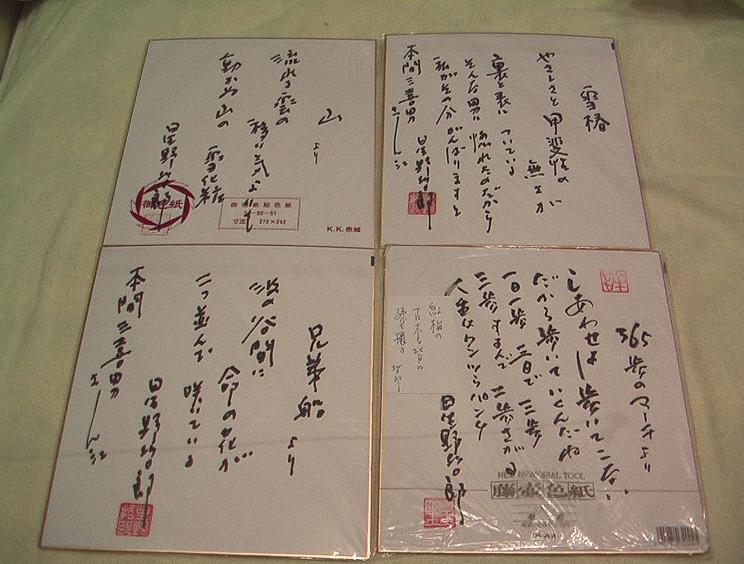 雪椿
やさしさと 甲斐性の 無さが
裏と表に ついている
そんな男に 惚れたのだから
私がその分 がんばりますと
星野哲郎
本間三喜男さん江
山 より
流れる雲の
移り気よりも
動かぬ山の
雪化粧
星野哲郎
御色紙
画仙紙貼色紙
-50-51
寸法 272×242
K.K.赤城
365歩のマーチより
しあわせは歩いてこない
だから歩いていくんだね
一日一歩 三日で 三歩
三歩すすんで 二歩さがる
人生はワンツーパンチ
星野哲郎
紅梅の
NEW MEMORIAL TOOL
色紙
兄弟船 より
波の谷間に
命の花が
二つ並んで 咲いている
星野哲郎
本間三喜男さん江